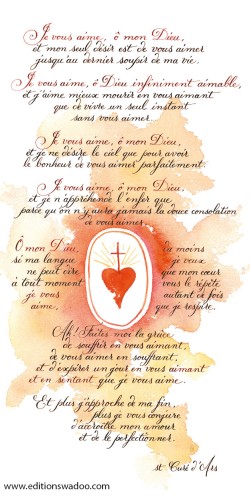 Je vous aime, ô mon Dieu,
et mon seul désir est de vous aimer
jusqu'au dernier soupir de ma vie.
Je vous aime, ô Dieu infiniment aimable,
et j'aime mieux mourir en vous aimant
que de vivre un seul instant
sans vous aimer.
Je vous aime, ô mon Dieu,
et je ne désire le ciel que pour avoir
le bonheur de vous aimer parfaitement.
Je vous aime, ô mon Dieu,
et je n'appréhende l'enfer que
parce qu'on n'y aura jamais la douce consolation
de vous aimer.
Ô mon Dieu,
si ma langue
ne peut dire
à tout moment
je vous
aime,
du moins
je veux
que mon cœur
vous le répète
autant de fois
que je respire.
Ah! Faites moi la grâce
de souffrir en vous aimant,
de vous aimer en souffrant,
et d'expirer un jour en vous aimant
et en sentant que je vous aime.
Et plus j'approche de ma fin,
plus je vous conjure
d'accroître mon amour
et de le perfectionner.
st Curé d'Ars
www.editionswadoo.com